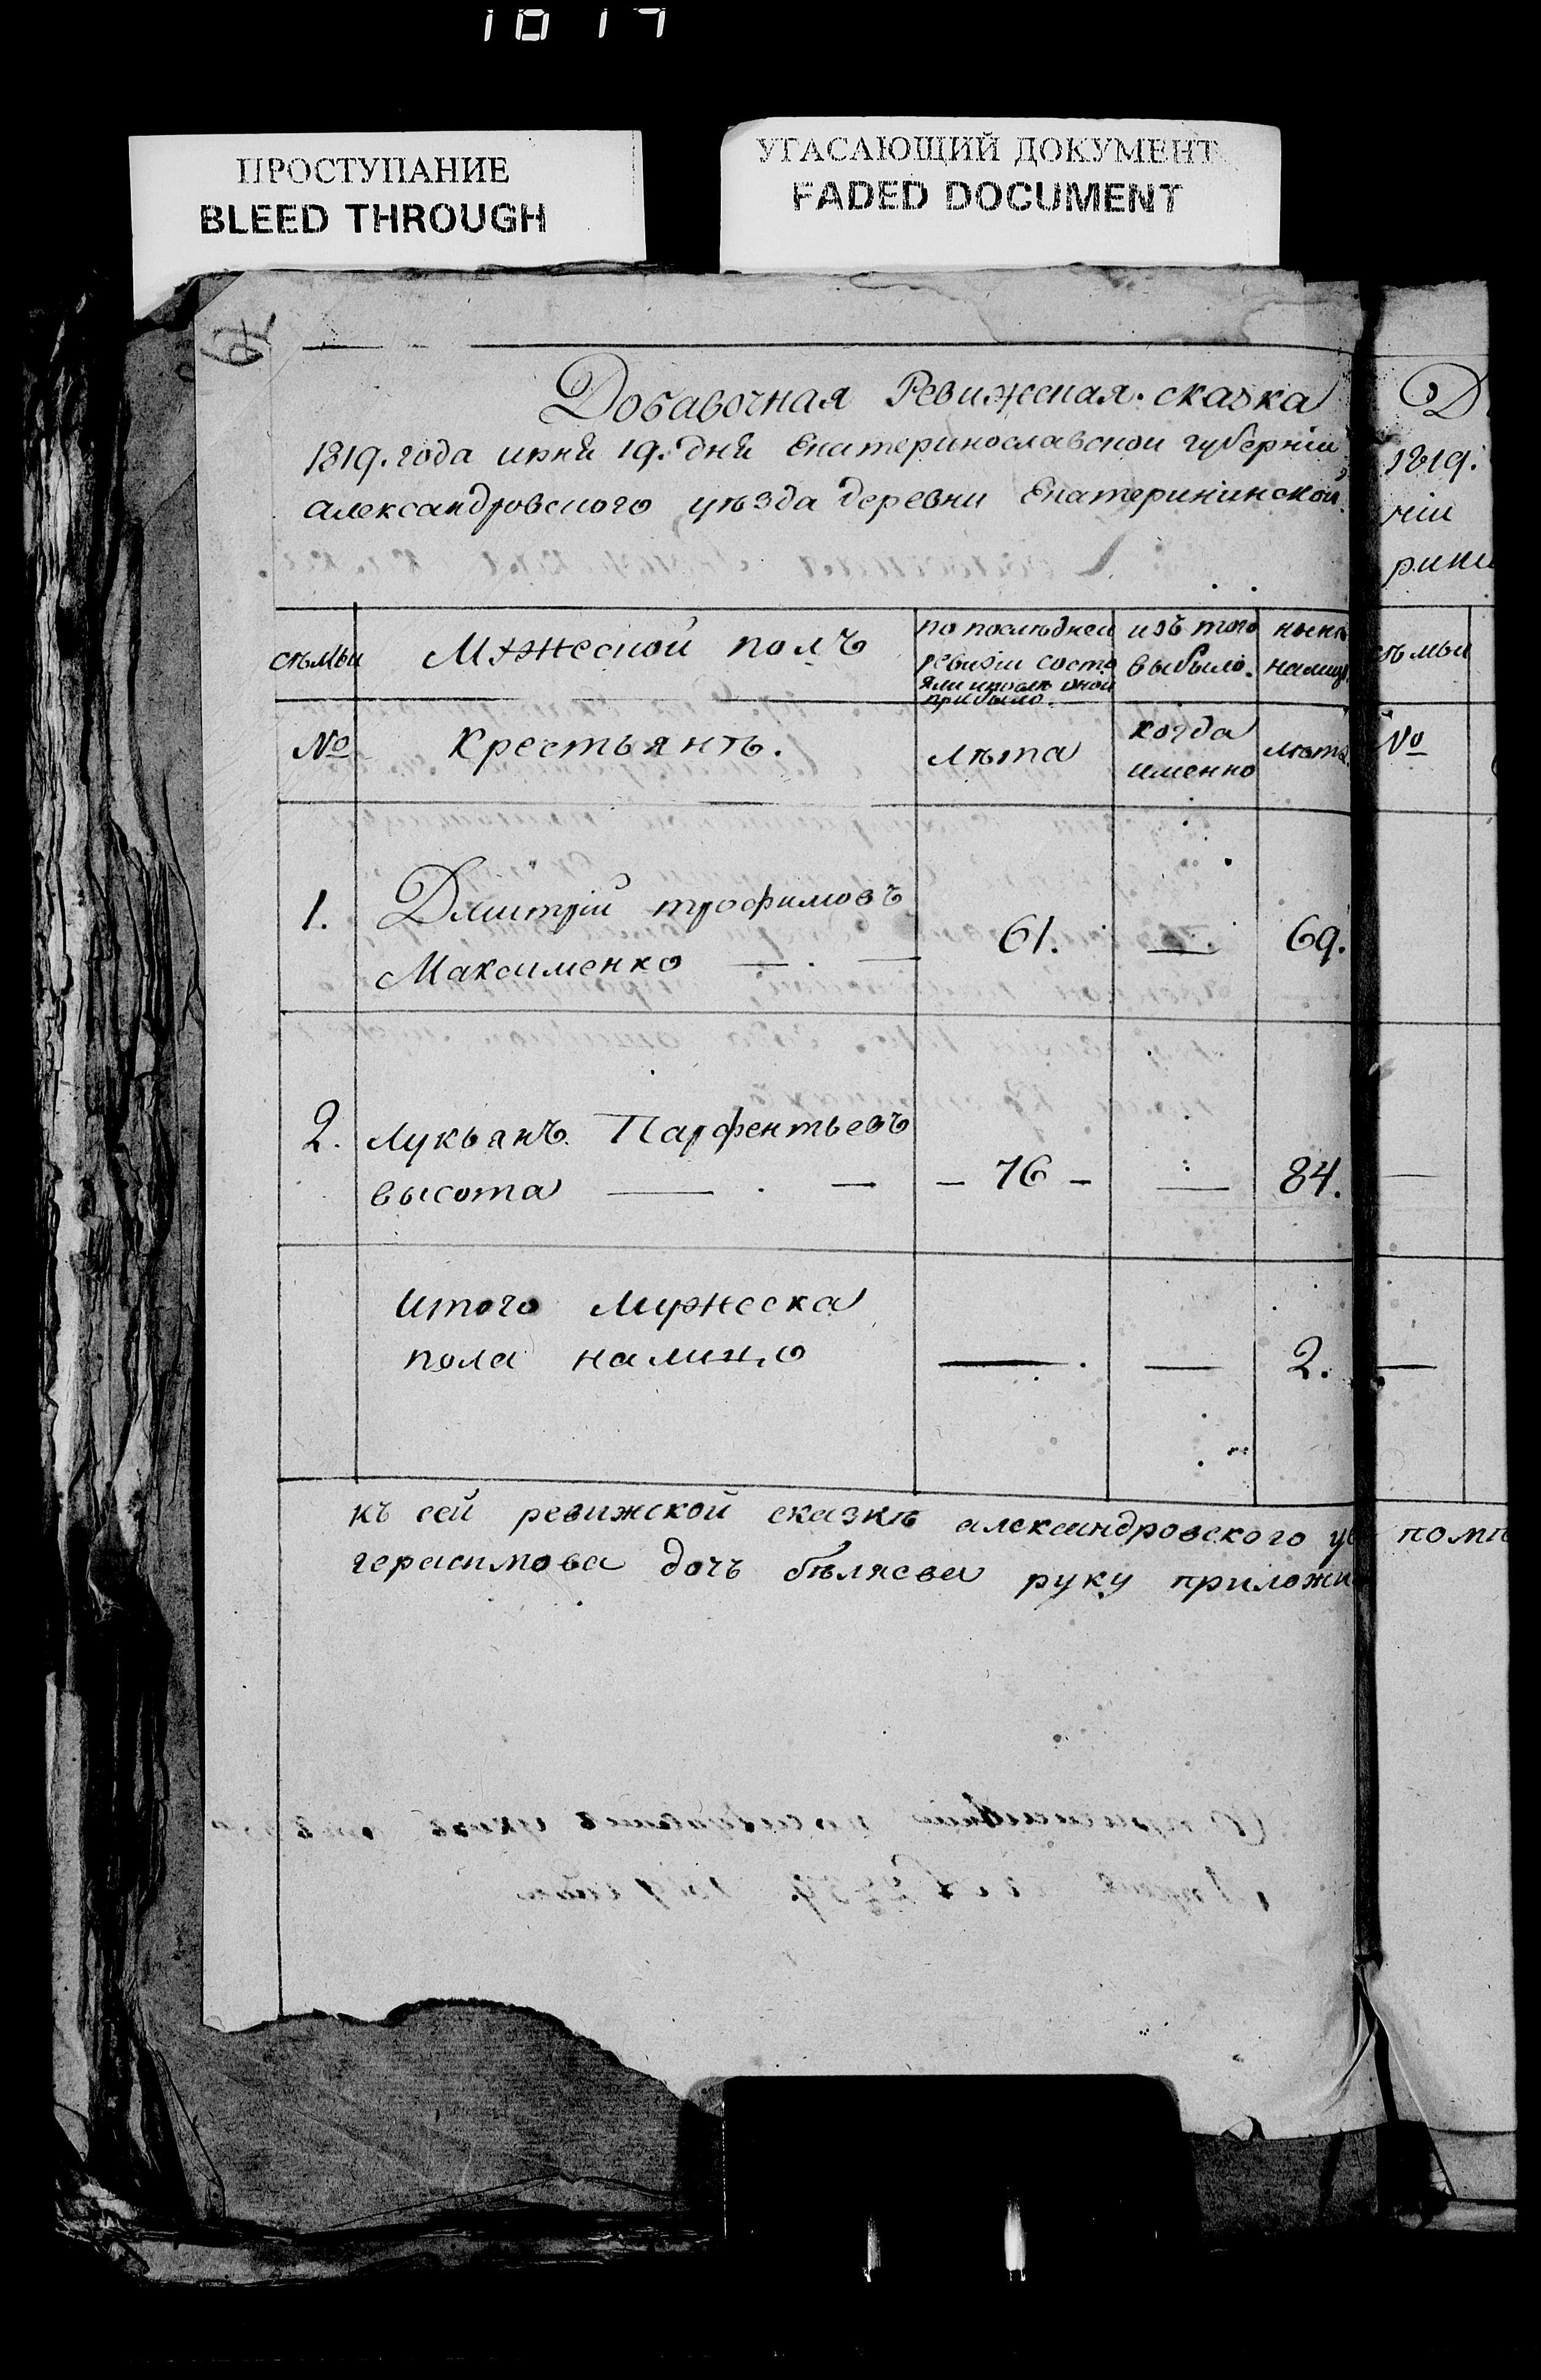 1017
ПРОСТУПАНИЕ
BLEED THROUGH
УГАСАЮЩИЙ ДОКУМЕНТ
FADED DOCUMENT
62
Добавочная Ревижеская сказка
1819. года июня 19. дня Екатеринославской губернии
александровского уѣзда деревни Екатерининской.
сѣмьи
Мужеской полъ
по послѣдней
ревизіи состо
яли и послѣ оной
прибыло.
изъ того
выбыло.
нынѣ
налицо.
№
Крестьянъ.
лѣта
когда
именно
лѣта.
1. Дмитрій трофимовъ
Максименко — . — 61. — 69.
2. Лукьянъ Парфентьевъ
высота — . — – 76 – — 84.
итого мужеска
пола налицо — . — 2.
къ сей ревижской сказкѣ александровского уе
герасимова дочь бѣляева руку приложи
Д
1819.
ніи
рини
сѣмьи
№
помѣ